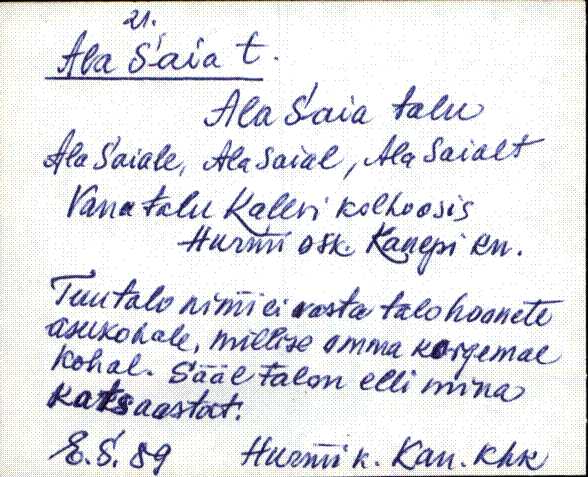 21.
Ala S'aia t.
Ala S'aia talu
Ala S'aiale, Ala Saial, Ala Saialt
Vana talu Kalevi kolhoosis
Hurmi osk. Kanepi kn.
Tuu talo nimi ei vasta talo hoonete
asukohale, millise omma korgemal
kohal. Sääl talon elli mina
kats aastat.
E. S. 89 Hurmi k. Kan. khk